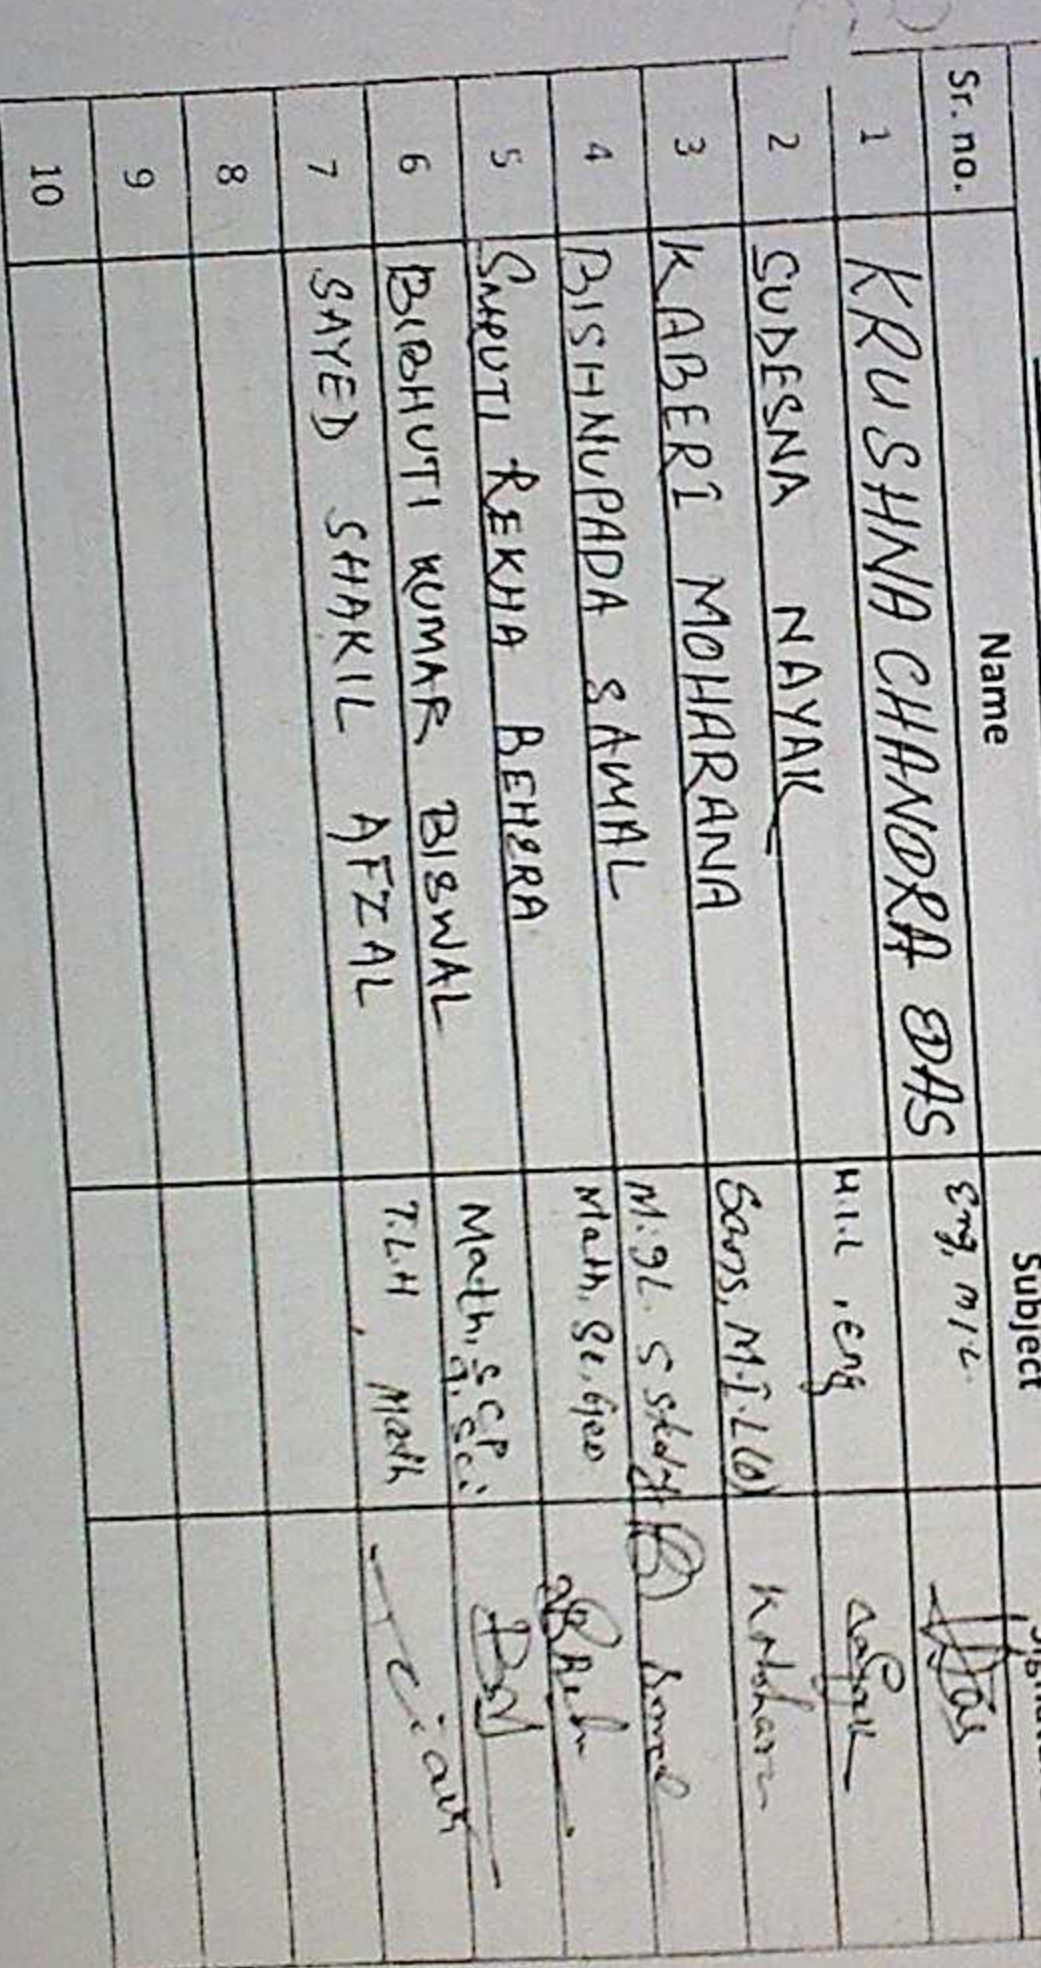 Sr. no. Name Subject
1 KRUSHNA CHANDRA DAS Eng, M.I.L.
2 SUDESNA NAYAK M.I.L, Eng
3 KABERI MOHARANA Sans, M.I.L(O)
4 BISHNUPADA SAMAL
5 SMRUTI REKHA BEHERA Math, Sc, Geo
6 BIBHUTI KUMAR BISWAL Math,
7 SAYED SHAKIL AFZAL T.L.H, Math
8
9
10